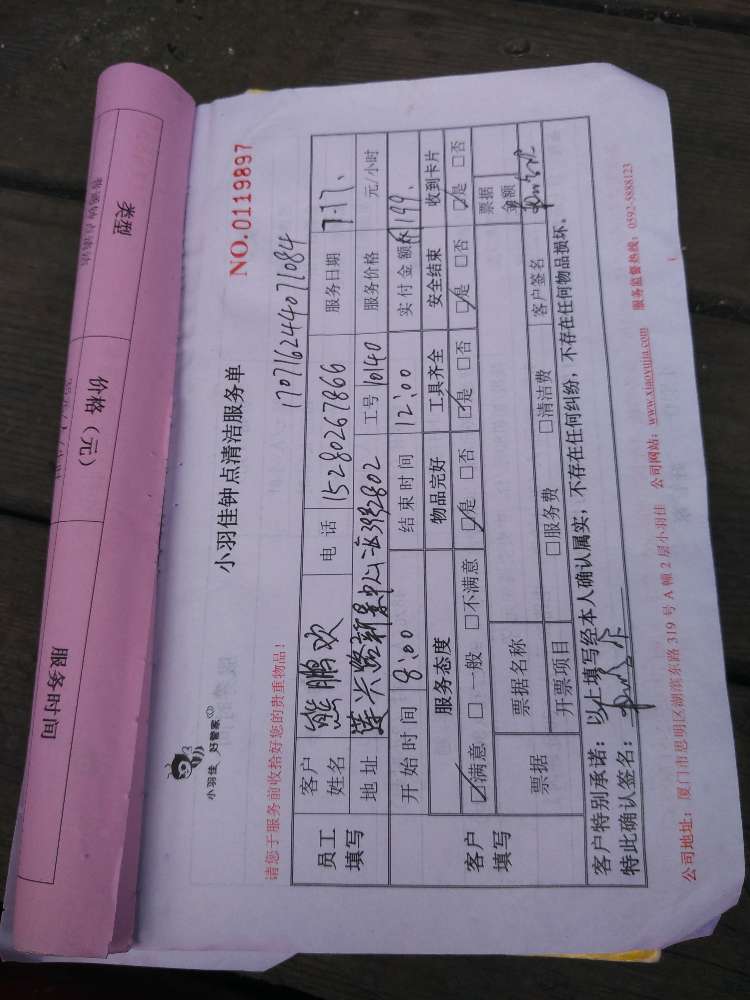 类型
价格（元）
服务时间
小羽佳 好管家
小羽佳钟点清洁服务单
NO.0119897
请您于服务前收拾好您的贵重物品！
17071624407 1084
员工填写
客户姓名 熊鹏欢 电话 15280267866 服务日期 7.17.
地址 莲 路新景中心 802 工号 10140 服务价格 元/小时
客户填写
开始时间 8:00 结束时间 12:00 实付金额 199.
服务态度 物品完好 工具齐全 安全结束 收到卡片
☑满意 □一般 □不满意 ☑是 □否 ☑是 □否 ☑是 □否 ☑是 □否
票据 票据名称 票据金额
开票项目 □服务费 □清洁费 客户签名
客户特别承诺：以上填写经本人确认属实，不存在任何纠纷，不存在任何物品损坏。
特此确认签名：
公司地址：厦门市思明区湖滨东路 319 号 A 幢 2 层小羽佳 公司网站：www.xiaoyujia.com 服务监督热线：0592-5888123